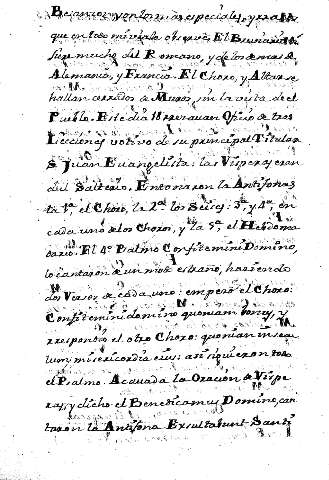 Besancon, y en lo mas especiales, y raras
que en todo mi viaje observè. El Breviario di
fiere mucho del Romano, y de los demas de
Alemania, y Francia. El Choro, y Altar se
hallan cerrados de Muros, sin la vista de el
Pueblo. Este dia 18 rezavan Oficio de tres
Licciones votivo de su principal Titular
S. Juan Evangelista: las Visperas eran
del Salterio. Entonaron la Antifona
1ª. el Choro, la 2ª. los Seises: 3ª, y 4ª, en
cada uno de los Choros, y la 5ª. el Hebdoma
dario. El 4º Psalmo Confitemini Domino,
lo cantaron de un modo estraño, haciendo
dos Versos de cada uno: empezò el Choro:
Confitemini domino quoniam bonus, y
respondiò el otro Choro: quoniam in sæcu
lum misericordia eius: asi siguieron todo
el Psalmo. Acavada la Oración de Vispe
ras, y dicho el Benedicamus Domino, can
taron la Antifona Exsultabunt Santi